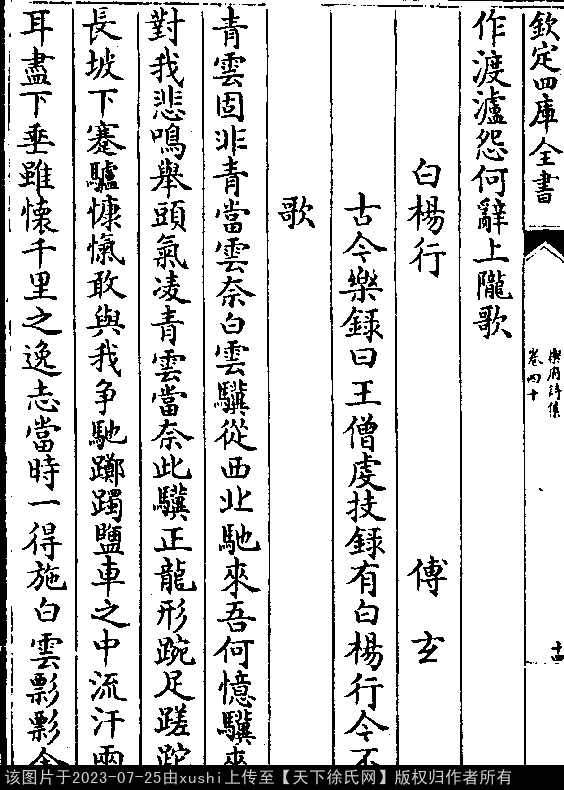 欽定四庫全書
樂府詩集
卷四十
十四
作渡瀘怨何辭上隴歌
白楊行 傅玄
古今樂録曰王僧虔技録有白楊行今不
歌
青雲固非青當雲奈白雲驥從西北馳來吾何憶驥來
對我悲鳴舉頭氣凌青雲當奈此驥正龍形踠足蹉跎
長坡下蹇驢慷慨敢與我争馳躑躅鹽車之中流汗兩
耳盡下垂雖懷千里之逸志當時一得施白雲影影
该图片于2023-07-25由xushi上传至【天下徐氏网】版权归作者所有